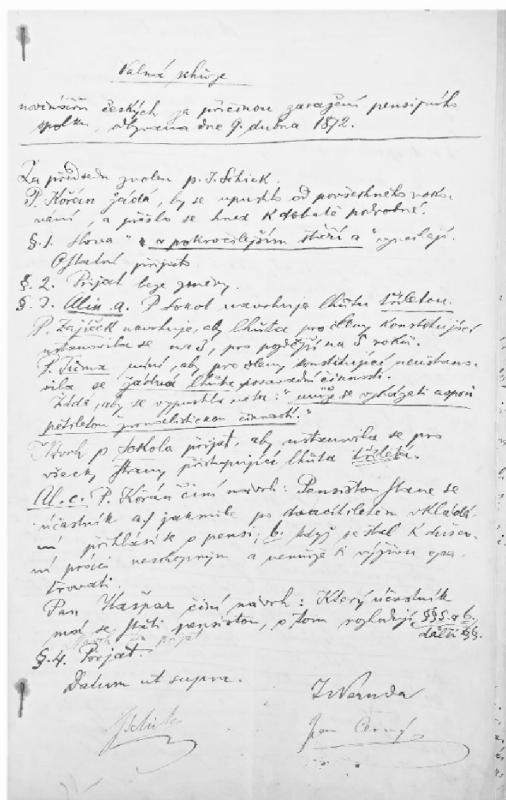 Valná schůze
novinářů českých za příčinou zaražení pensijního
spolku, odbývaná dne 9. dubna 1872.
Za předsedu zvolen p. J. Schick.
P. Kořán žádá, by se upustilo od povšechného roko-
vání, a přešlo se hned k debatě podrobné.
§. 1. Slova "a pokročilejším stáří a" vynechají.
Ostatní přijato.
§. 2. Přijat beze změny.
§. 3. Alin. a. P. Sokol navrhuje lhůtu tříletou.
P. Zajíček navrhuje, aby lhůta pro členy konstituující
ustanovila se na 3, pro pozdější na 5 roků.
P. Tůma míní, aby pro členy konstituující neustano-
vila se žádná lhůta posavadní činnosti.
Žádá, aby se vypustila věta: "musí se vykázati aspoň
pětiletou žurnalistickou činností."
Návrh p. Sokola přijat, aby ustanovila se pro
všecky strany přistupující lhůta tříletá.
Al. c. P. Kořán činí návrh: Pensistou stane se
účastník a) jakmile po dvacítiletém vkládá-
ní přihlásí se o pensi; b) když se stal k dušev-
ní práci neschopným a nemůže si výživu opa-
trovati.
Pan Kašpar činí návrh: Který účastník
má se státi pensistou, o tom rozhodují §§§. a b.
další §§.
§. 4. Přijat.
Datum ut supra.
J Neruda
JSchick
Jan Černý